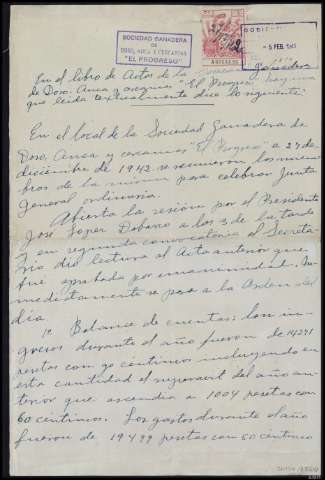 SOCIEDAD GANADERA
DE
DOSO, AREA Y CERCANIAS
"EL PROGRESO"
5 FEB. 1943
En el libro de Actas de la Sociedad Ganadera
de Doso, Area y cercanias "El Progreso" hay una
que leida textualmente dice lo siguiente:
En el local de la Sociedad Ganadera de
Doso, Area y cercanias "El Progreso" a 27 de
diciembre de 1942 se reunieron los miem-
bros de la misma para celebrar Junta
General ordinaria.
Abierta la sesión por el Presidente
José Lopez Dobarro a las 3 de la tarde
y en segunda convocatoria el Secreta-
rio dió lectura al Acta anterior que
fué aprobada por unanimidad. In-
mediatamente se pasa a la Orden del
dia.
1º Balance de cuentas: Los in-
gresos durante el año fueron de 14291
pesetas con 90 centimos incluyendo en
esta cantidad el superavit del año an-
terior que ascendia a 1004 pesetas con
60 centimos. Los gastos durante el año
fueron de 19499 pesetas con 50 centimos